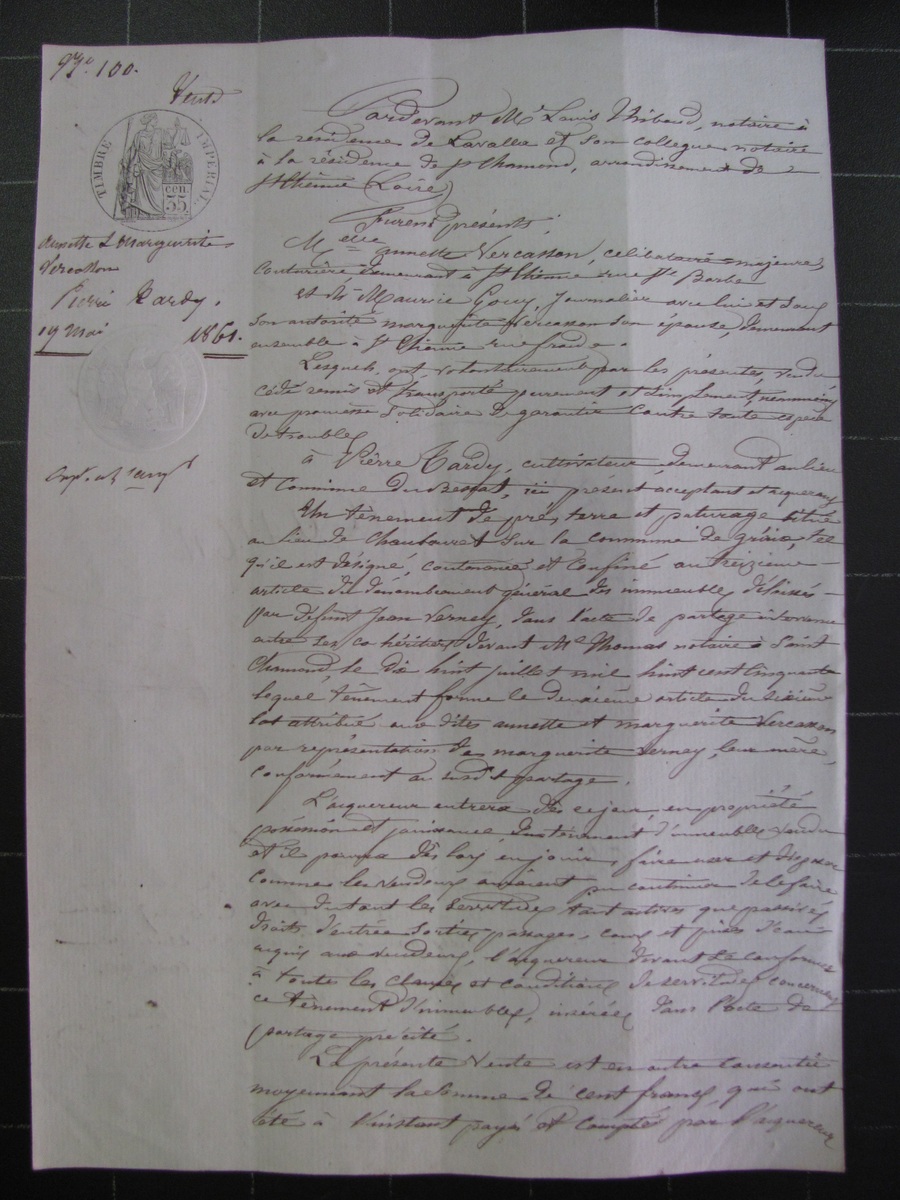 No. 100.
Vente
TIMBRE IMPÉRIAL
cen.
35
annette & Marguerite
Vercasson
Pierre Tardy.
19 Mai 1861.
Pardevant Me Louis Thibaud, notaire à
la résidence de Lavalla et son collegue notaire
à la résidence de St Chamond, arrondissement de
St Etienne (Loire)
Furent présents;
Melle annette Vercasson, celibataire majeure,
couturière demeurant à St Etienne rue Ste Barbe
et Mr Maurice Gouy, Journalier avec lui et sous
son autorité marguerite Vercasson son épouse, demeurant
ensemble à St Etienne rue froide.
Lesquels, ont volontairement par les présentes, vendu
cédé remis et transporté purement et simplement,
avec promesse solidaire de garantir contre toute espèce
de troubles
à Pierre Tardy, cultivateur, demeurant au lieu
et commune du Bessat, ici présent acceptant et acquereur
Un tènement de prés terre et paturage situé
au lieu de Chaubouret sur la commune de , tel
qu'il est désigné, contenancé et confiné au treizième
article du dénombrement général des immeubles délaissés
par défunt Jean Verney, dans l'acte de partage intervenu
entre ses co héritiers devant Me Thomas notaire à Saint
Chamond, le dix huit juillet mil huit cent cinquante
lequel tènement forme le deuxième article du sixième
lot attribué aux dites annette et marguerite Vercasson
par représentation de marguerite Verney, leur mère,
conformément au susdt partage.
L'acquereur entrera dès ce jour, en propriété
possession et jouissance, du tènement d'immeubles vendu
et il pourra dès lors en jouir, faire user et disposer
comme les vendeurs auraient pu continuer de le faire
avec du tout les servitudes tant actives que passives
droits d'entrée sorties passages, cours et prises d'eau
acquis aux vendeurs, l'acquereur devant se conformer
à toutes les clauses et conditions de servitudes concernant
ce tènement d'immeubles, insérées dans l'acte de
partage précité.
La présente vente est en outre consentie
moyennant la somme de cent francs, qui ont
été à l'instant payés et comptés par l'acquereur